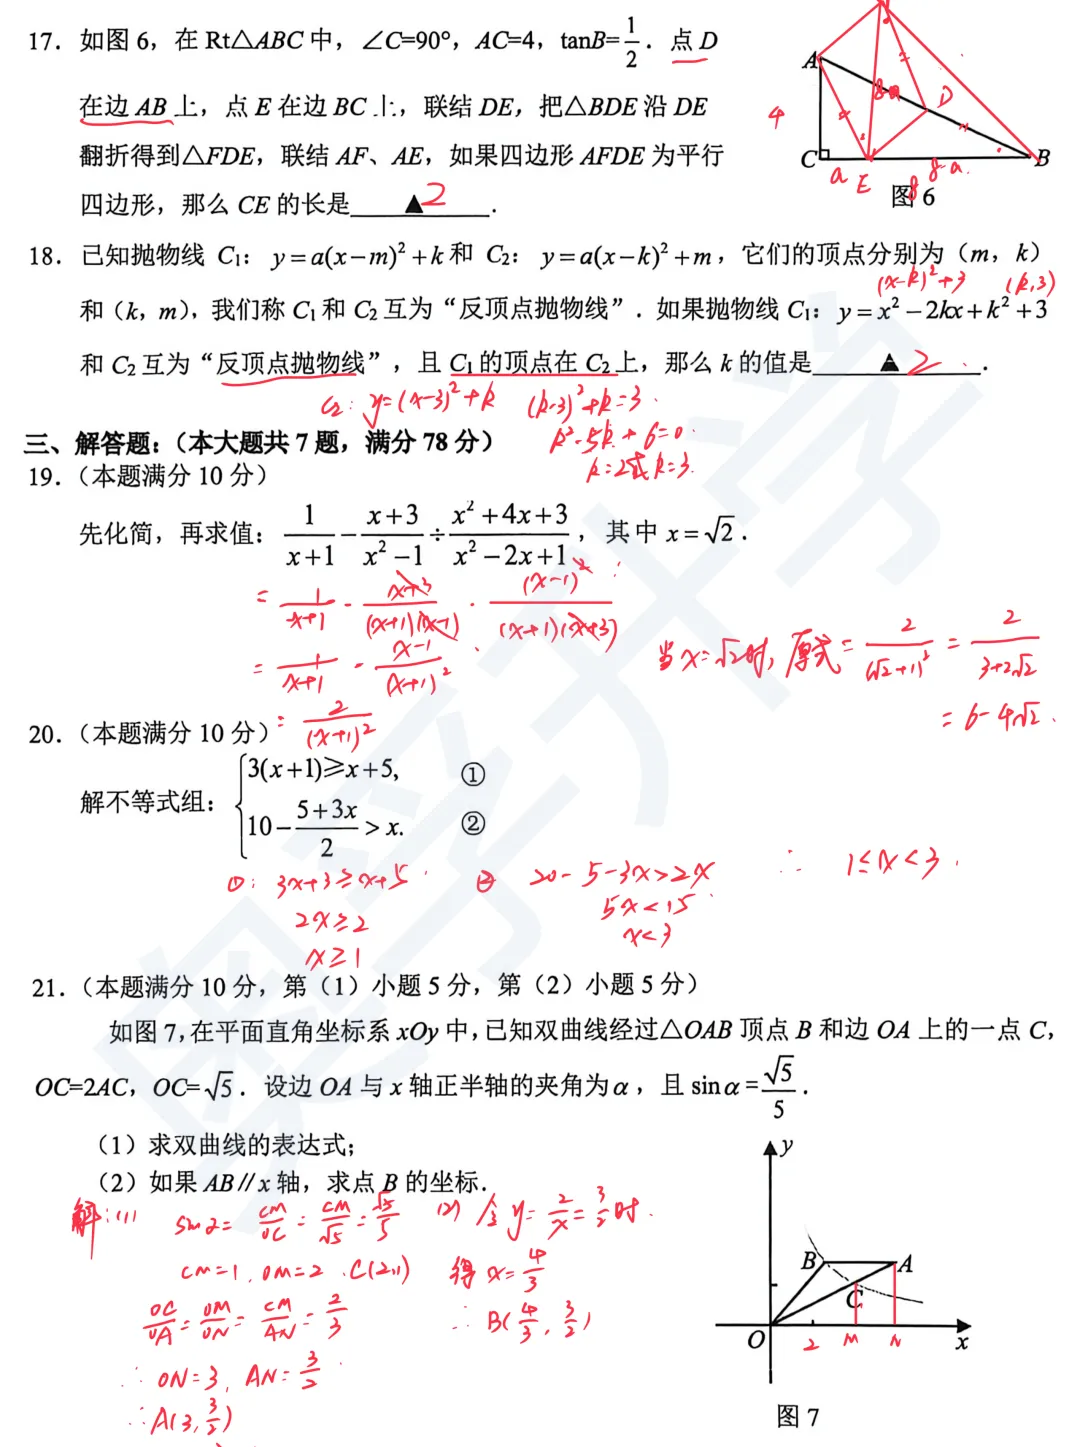 17. 如图 6，在 Rt△ABC 中，∠C=90°，AC=4，tanB=1/2．点 D
在边 AB 上，点 E 在边 BC 上，联结 DE，把△BDE 沿 DE
翻折得到△FDE，联结 AF、AE，如果四边形 AFDE 为平行
四边形，那么 CE 的长是____▲____．
2
A
D
8-a
4
C
B
a
E
8
8-a
图 6
18. 已知抛物线 C₁：y=a(x−m)²+k 和 C₂：y=a(x−k)²+m，它们的顶点分别为（m，k）
(x-k)²+3 (k,3)
和（k，m），我们称 C₁ 和 C₂ 互为“反顶点抛物线”．如果抛物线 C₁：y=x²−2kx+k²+3
和 C₂ 互为“反顶点抛物线”，且 C₁ 的顶点在 C₂ 上，那么 k 的值是____▲____．
2
C₂: y=(x-3)²+k (k-3)²+k=3.
k²-5k+6=0
k=2或k=3.
三、解答题：（本大题共 7 题，满分 78 分）
19.（本题满分 10 分）
先化简，再求值：1/(x+1) − (x+3)/(x²−1) ÷ (x²+4x+3)/(x²−2x+1)，其中 x=√2．
= 1/(x+1) - (x+3)/((x+1)(x-1)) · (x-1)²/((x+1)(x+3))
= 1/(x+1) - (x-1)/(x+1)²
= 2/(x+1)²
当x=√2时, 原式= 2/(√2+1)² = 2/(3+2√2)
= 6-4√2.
20.（本题满分 10 分）
解不等式组：
3(x+1)≥x+5, ①
10−(5+3x)/2 > x. ②
①: 3x+3≥x+5
2x≥2
x≥1
② 20-5-3x>2x
5x<15
x<3
∴ 1≤x<3.
21.（本题满分 10 分，第（1）小题 5 分，第（2）小题 5 分）
如图 7，在平面直角坐标系 xOy 中，已知双曲线经过△OAB 顶点 B 和边 OA 上的一点 C，
OC=2AC，OC=√5．设边 OA 与 x 轴正半轴的夹角为α，且 sinα=√5/5．
（1）求双曲线的表达式；
（2）如果 AB∥x 轴，求点 B 的坐标．
解:(1) sinα= CM/OC = CM/√5 = √5/5
CM=1, OM=2. C(2,1)
OC/OA = OM/ON = CM/AN = 2/3
∴ ON=3, AN=3/2
∴A(3,3/2)
(2) 令y=2/x=3/2时.
得x=4/3
∴ B(4/3, 3/2)
y
B
A
C
O
2
M
N
x
图 7
奥孚升学